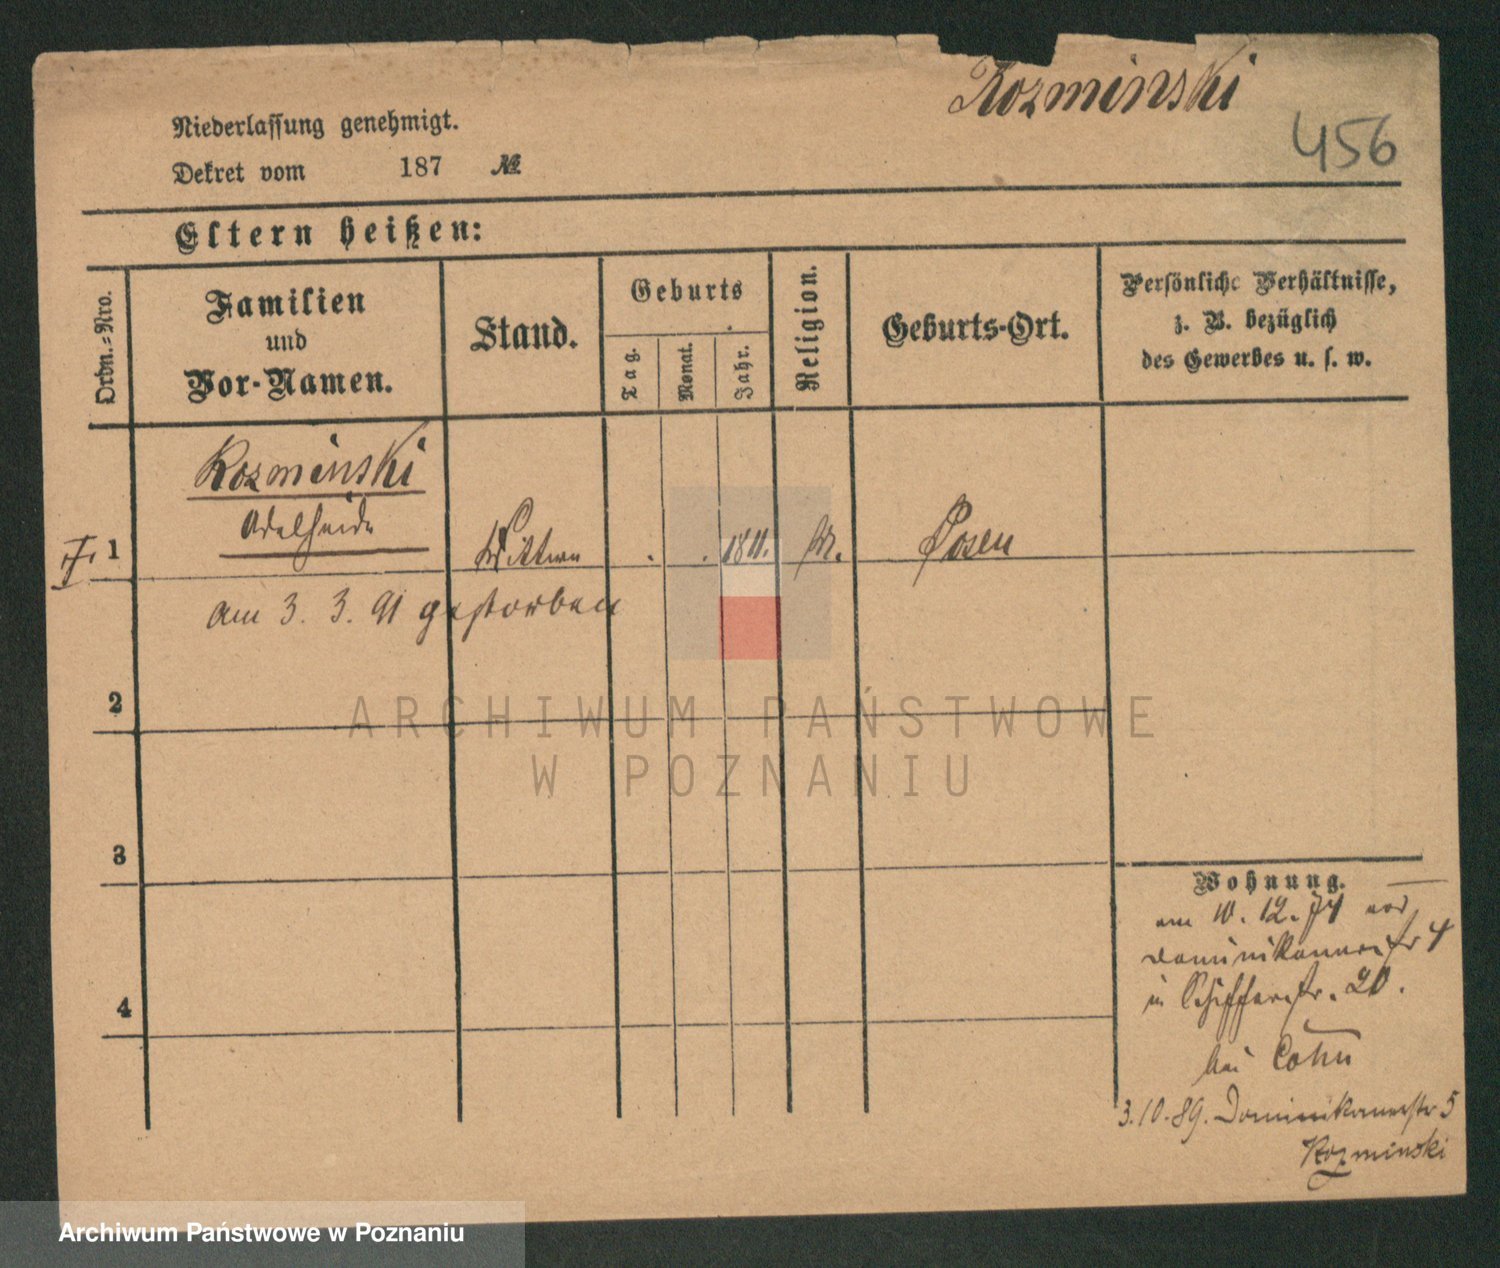 Rozminski
456
Niederlassung genehmigt.
Dekret vom 187 №
Eltern heißen:
Ordn.-Nro.
Familien
und
Vor-Namen.
Stand.
Geburts
Tag.
Monat.
Jahr.
Religion.
Geburts-Ort.
Persönliche Verhältnisse,
z. B. bezüglich
des Gewerbes u. s. w.
Rozminski
Adelheide
1 Wittwe . . 1811. M. Posen
am 3. 3. 91 gestorben
2
3
4
ARCHIWUM PAŃSTWOWE
W POZNANIU
Wohnung.
am 10. 12. 74 von
Dominikanerstr 4
in Schifferstr. 20.
bei Cohn
3.10.89. Dominikanerstr 5
Kozminski
Archiwum Państwowe w Poznaniu